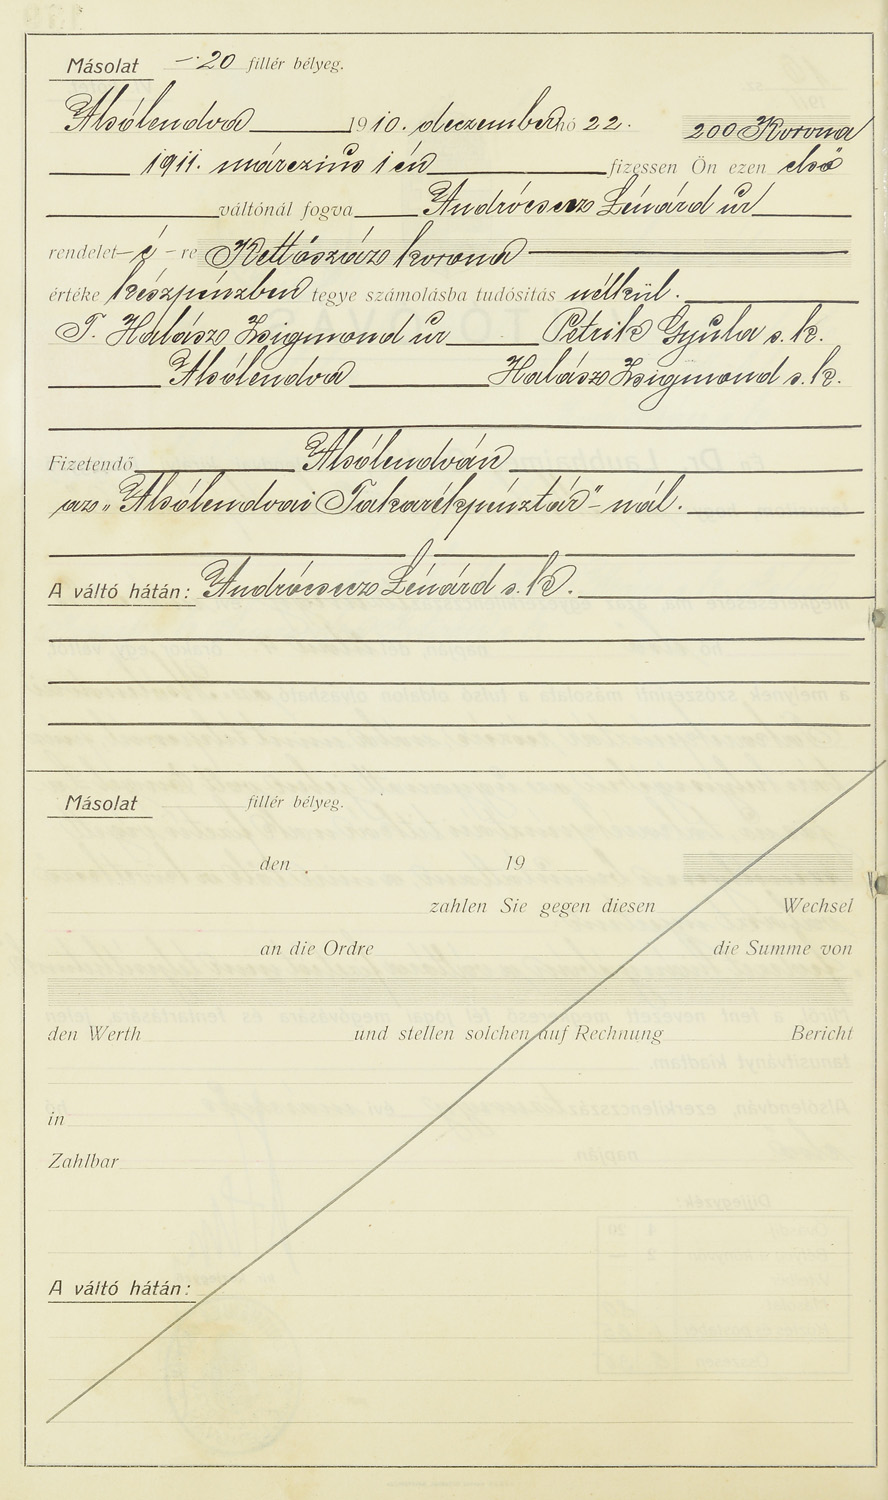 Másolat –·20 fillér bélyeg.
Alsólendva 1910. deczember hó 22. 200 Korona
1911. márczius 1 én fizessen Ön ezen első
váltónál fogva Andrócsecz Lénárd úr
rendelet – é – re Kettőszáz korona
értéke készpénzben tegye számolásba tudósitás nélkül.
T. Halász Zsigmond úr Petrik Gyula s. k.
Alsólendva Halász Zsigmond s. k.
Fizetendő Alsólendván
az „Alsólendvai Takarékpénztár"-nál.
A váltó hátán: Andrócsecz Lénárd s. k.
Másolat fillér bélyeg.
den 19
zahlen Sie gegen diesen Wechsel
an die Ordre die Summe von
den Werth und stellen solchen auf Rechnung Bericht
in
Zahlbar
A váltó hátán: